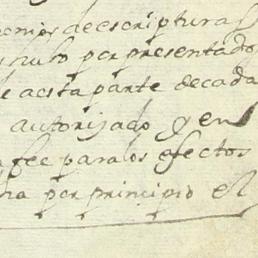 de escripturas
huso por presentado
de a esta parte de cada
autorijado y en
fee para los efectos
na por principio el